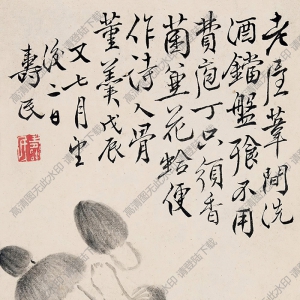 老屋葦間洗
酒鐺盤飱不用
費庖丁只須香
菌並花鮯便
作詩人骨
董羹戊辰
又七月望
後二日
壽民